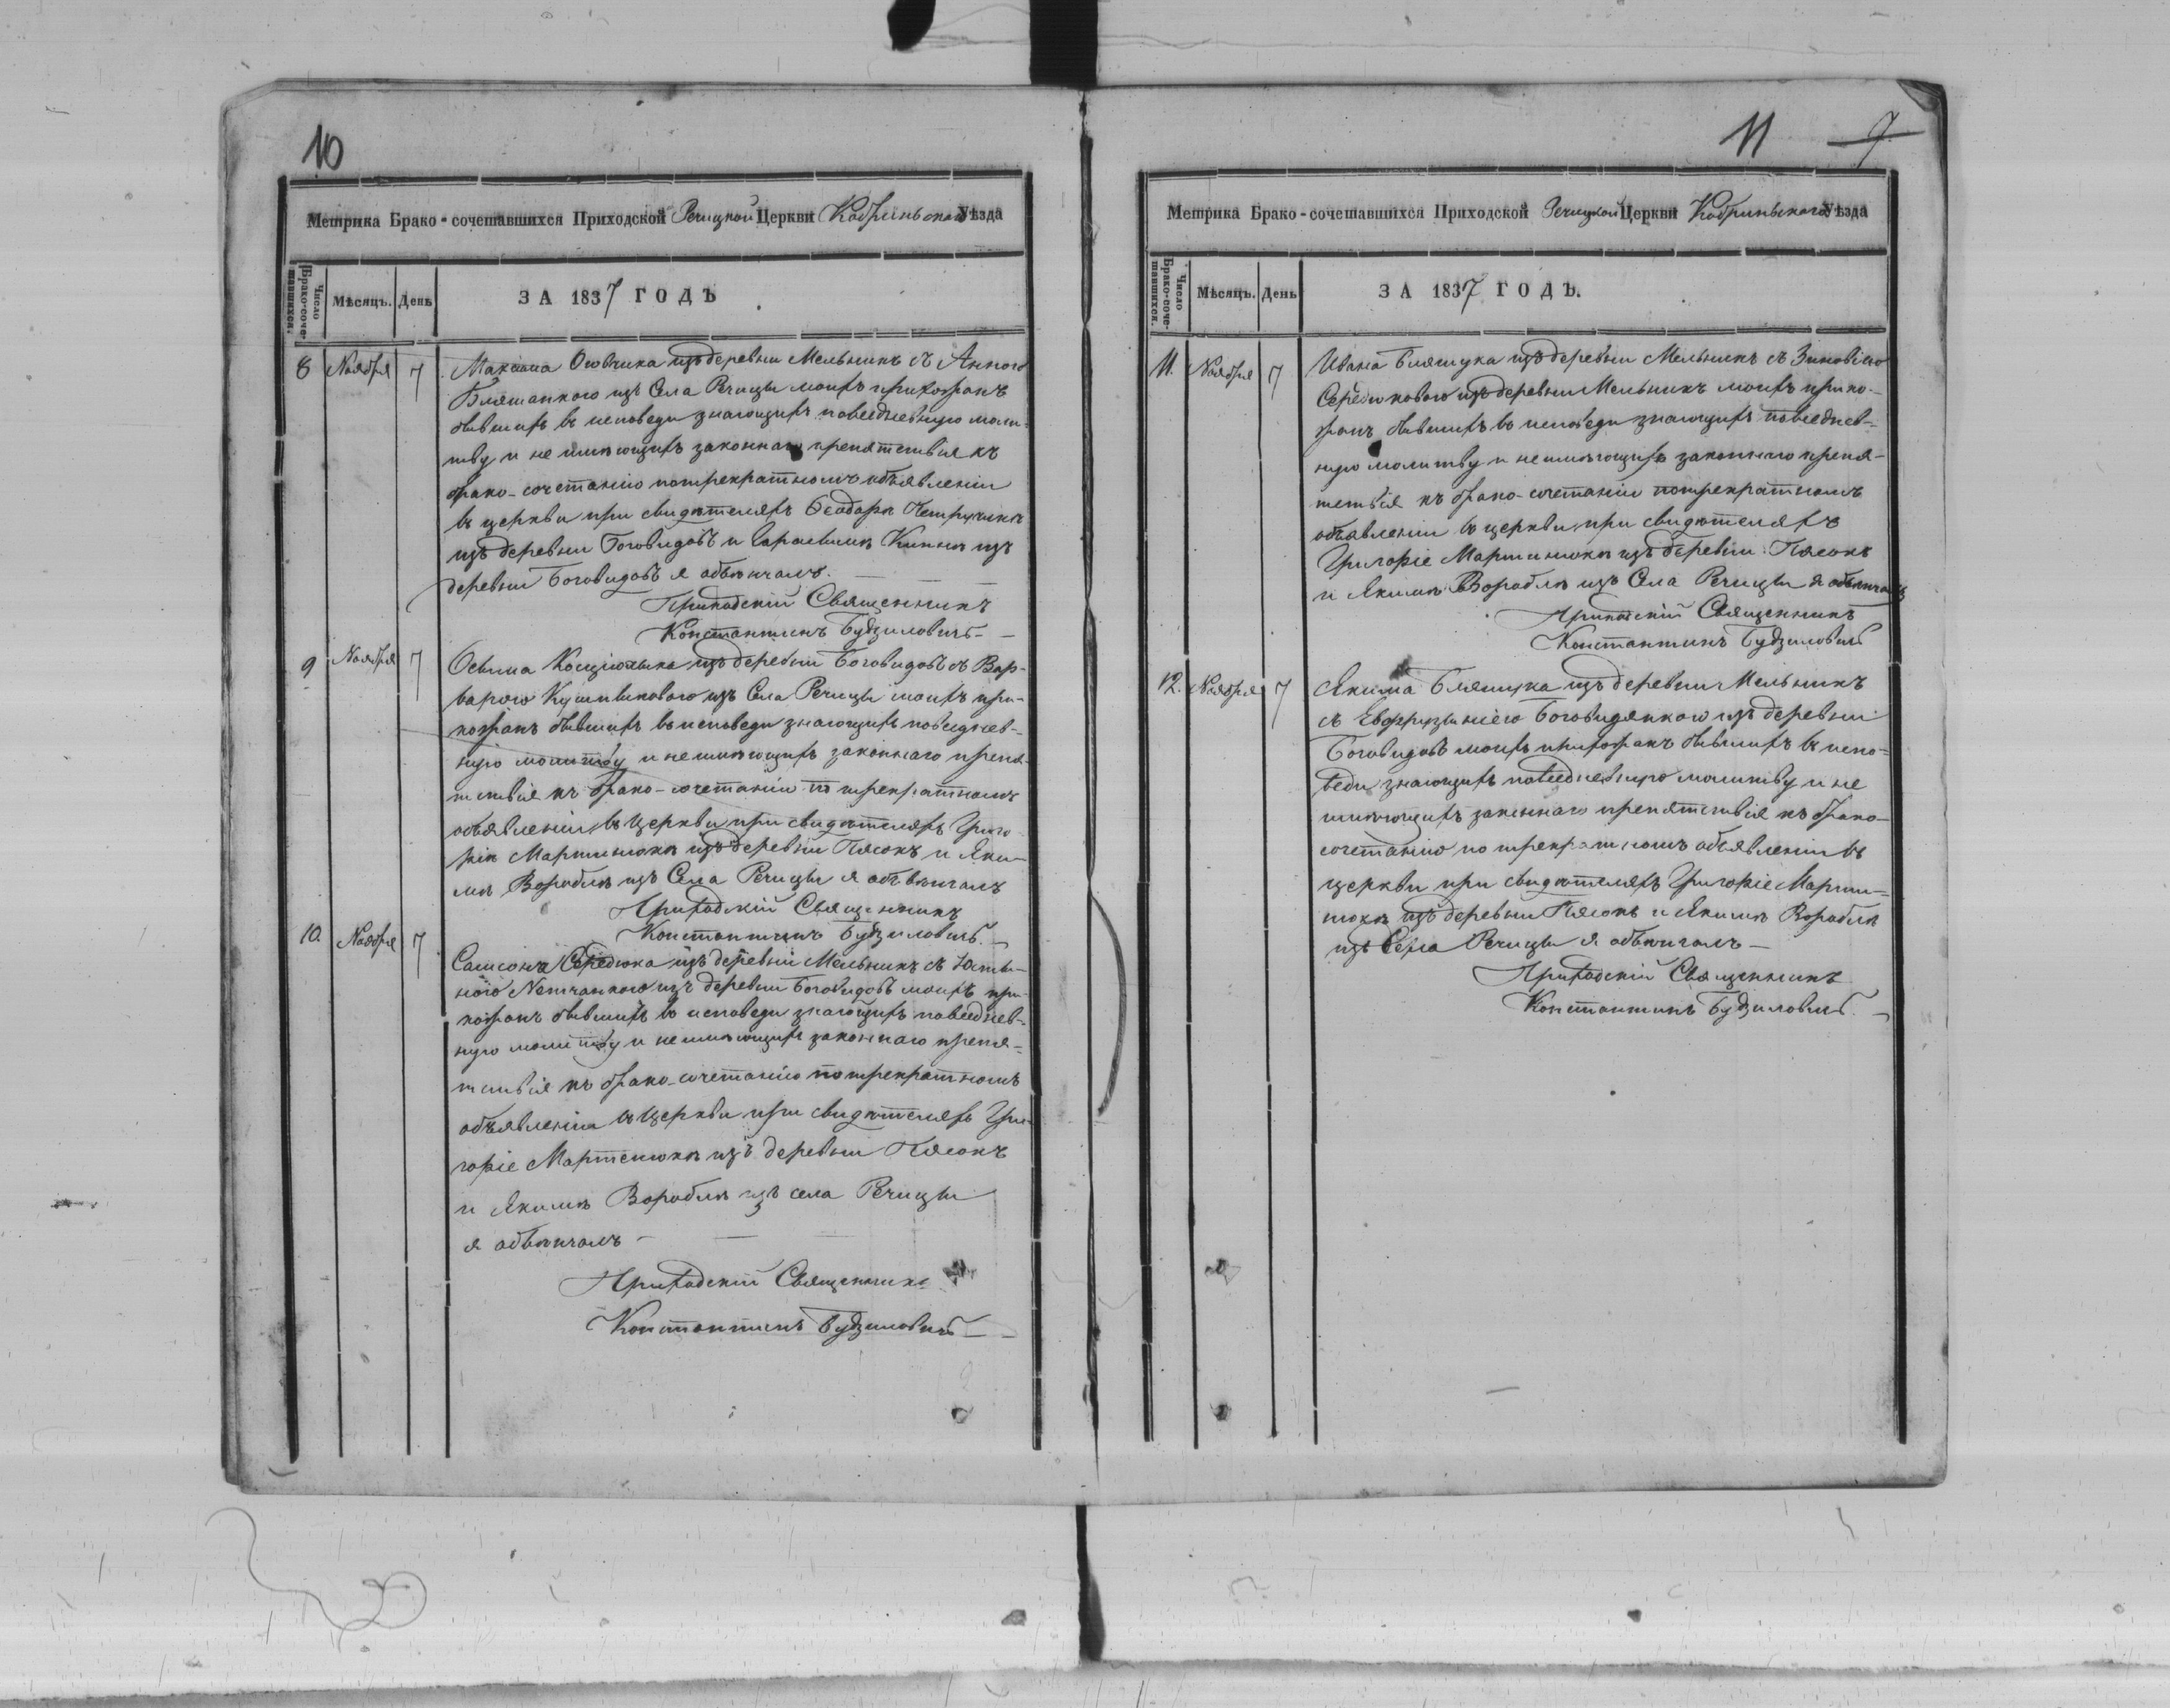 10
Метрика Брако-сочетавшихся Приходской Речицкой Церкви Кобриньскаго Уѣзда
Число Брако-соче-тавшихся.
Мѣсяцъ.
День
ЗА 1837 ГОДЪ
8 Ноября 7
Максима изъ деревни Мельникъ съ Анною
изъ Села Речицы моихъ прихожанъ
бывшихъ въ исповеди знающихъ повседневную моли-
тву и не имѣющихъ законнаго препятствія къ
брако-сочетанію по трекратномъ объявленіи
въ церкви при свидѣтеляхъ Ѳеодорѣ
изъ деревни Боговидовъ и изъ
деревни Боговидовъ я обвѣнчалъ.
Приходскій Священникъ
Константинъ Будзиловичъ
9 Ноября 7
Осыпа изъ деревни Боговидовъ съ Вар-
варою изъ Села Речицы моихъ при-
хожанъ бывшихъ въ исповеди знающихъ повседнев-
ную молитву и не имѣющихъ законнаго препя-
тствія къ брако-сочетанію по трекратномъ
объявленіи въ Церкви при свидѣтеляхъ Григо-
ріи Мартинюкѣ изъ деревни Пясокъ и Яки-
мѣ Вороблѣ изъ Села Речицы я обвѣнчалъ
Приходскій Священникъ
Константинъ Будзиловичъ
10. Ноября 7
Самсона Середюка изъ деревни Мельникъ съ Юсти-
ною изъ деревни Боговидовъ моихъ при-
хожанъ бывшихъ въ исповеди знающихъ повседнев-
ную молитву и не имѣющихъ законнаго препя-
тствія къ брако-сочетанію по трекратномъ
объявленіи въ Церкви при свидѣтеляхъ Гри-
горіе Мартенюкѣ изъ деревни Пясокъ
и Якимѣ Вороблѣ изъ села Речицы
я обвѣнчалъ
Приходскій Священникъ
Константинъ Будзиловичъ
11 7
Метрика Брако-сочетавшихся Приходской Речицкой Церкви Кобриньскаго Уѣзда
Число Брако-соче-тавшихся.
Мѣсяцъ.
День
ЗА 1837 ГОДЪ.
11. Ноября 7
Ивана Бляшука изъ деревни Мельникъ съ Зиновіею
Середюковою изъ деревни Мельникъ моихъ прихо-
жанъ бывшихъ въ исповеди знающихъ повседнев-
ную молитву и не имѣющихъ законнаго препя-
тствія къ брако-сочетанію по трекратномъ
объявленіи въ церкви при свидѣтеляхъ
Григоріе Мартинюкѣ изъ деревни Пясокъ
и Якимѣ Вороблѣ изъ Села Речицы я обвѣнчалъ
Приходскій Священникъ
Константинъ Будзиловичъ
12. Ноября 7
Якима Бляшука изъ деревни Мельникъ
съ изъ деревни
Боговидовъ моихъ прихожанъ бывшихъ въ испо-
веди знающихъ повседневную молитву и не
имѣющихъ законнаго препятствія къ брако-
сочетанію по трекратномъ объявленіи въ
церкви при свидѣтеляхъ Григоріе Марти-
нюкѣ изъ деревни Пясокъ и Якимѣ Вороблѣ
изъ Села Речицы я обвѣнчалъ
Приходскій Священникъ
Константинъ Будзиловичъ.